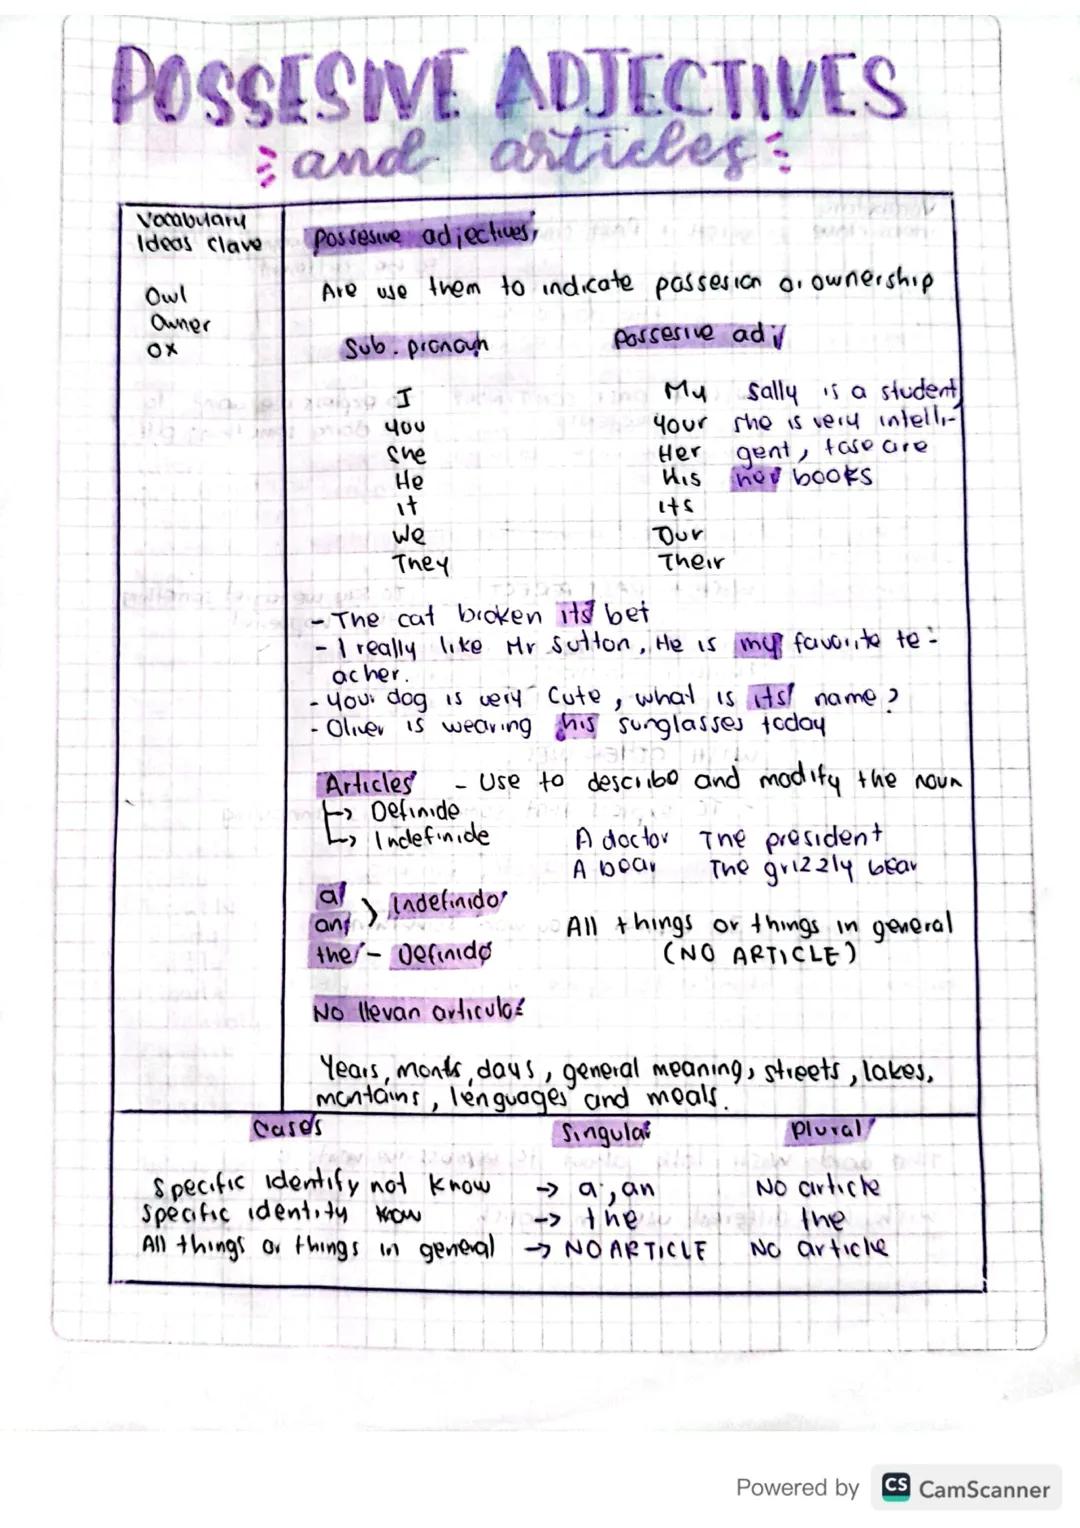 POSSESIVE ADJECTIVES
and articles
Vocabulary
Ideas clave
Owl
Owner
Ox
Possesive adjectives
Are use them to indicate possesion or ownership
Sub. pronoun
Possesive adj
I
you
She
He
it
We
They
My
your
Her
His
its
Our
Their
Sally is a student,
she is very intelli-
gent, tose are
her books
- The cat broken its bet
- I really like Mr Sutton, He is my favorite te-
acher.
- your dog is very cute, what is its name?
- Oliver is wearing his sunglasses today
Articles - Use to describe and modify the noun
→ Definide
→ Indefinide
A doctor The president
A bear The grizzly bear
a
an } Indefinido
the - Definido
All things or things in general
(NO ARTICLE)
No llevan articulos
Years, monts, days, general meaning, streets, lakes,
montains, lenguages and meals.
Cases Singular Plural
Specific identify not know → a, an No article
Specific identity know → the the
All things or things in general → NO ARTICLE No article
Powered by CS CamScanner